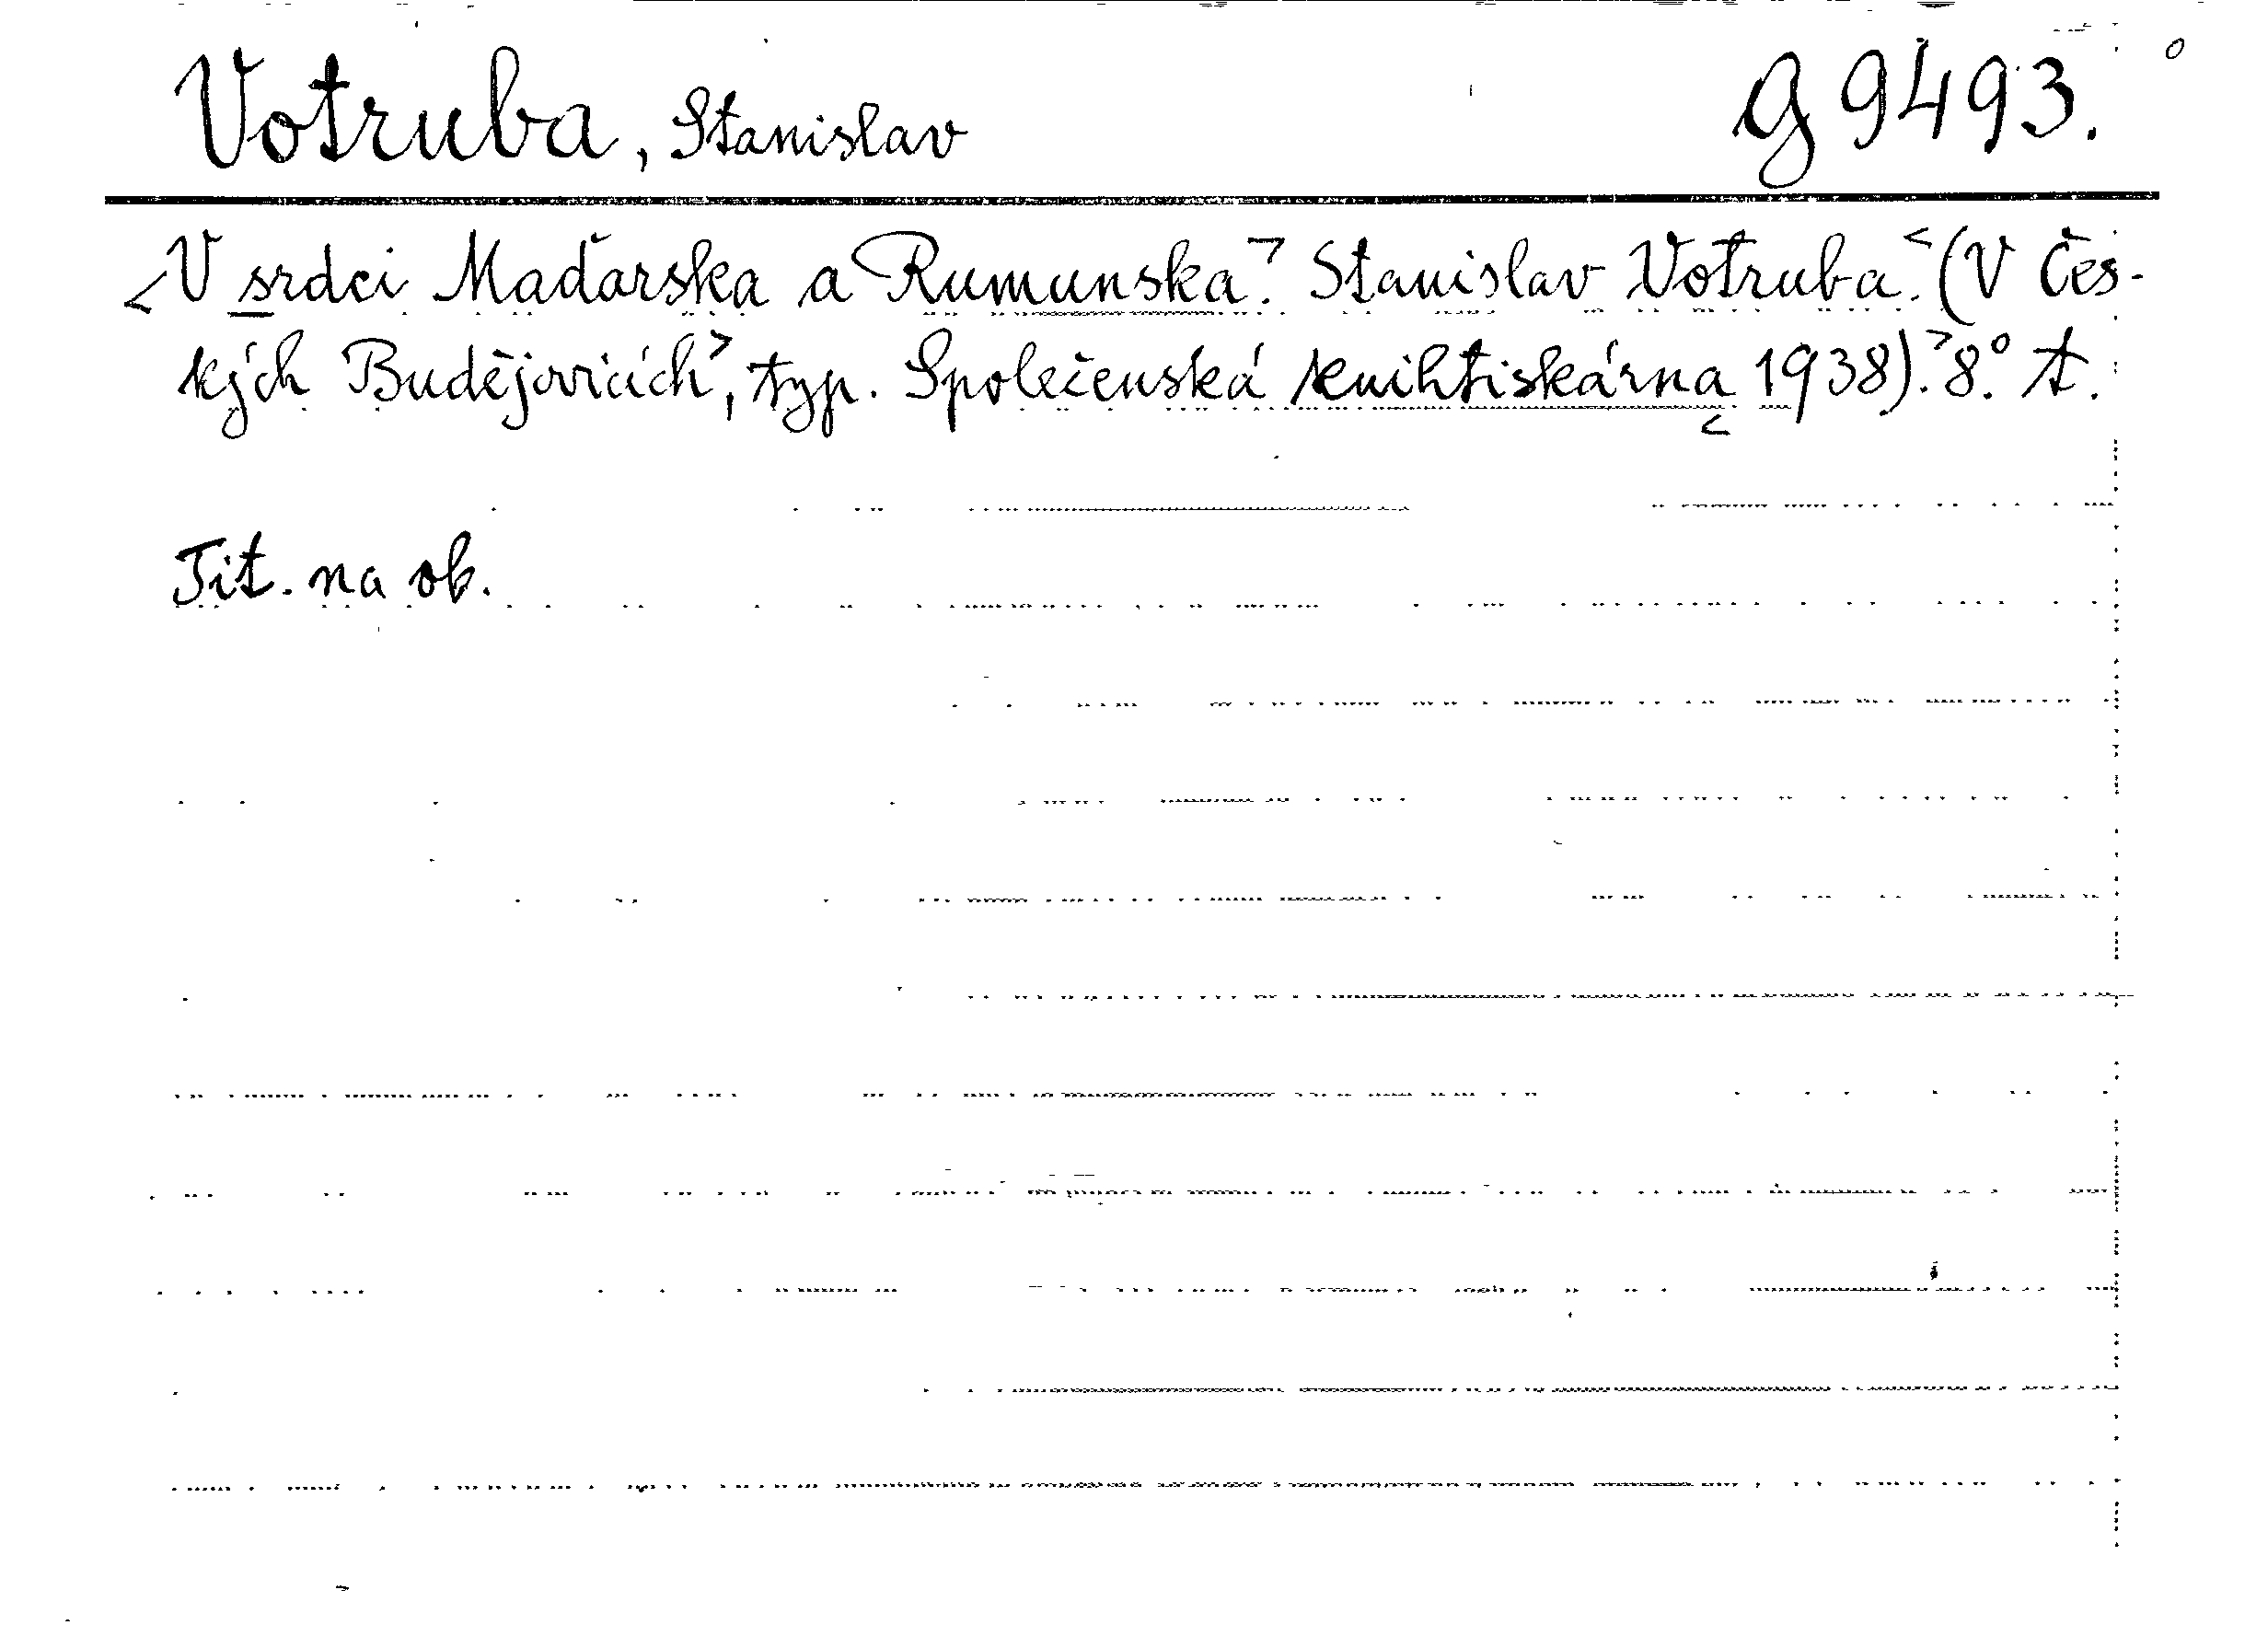 Votruba, Stanislav g 9493.
<V srdci Maďarska a Rumunska.> Stanislav Votruba.<(V Čes-
kých Budějovicích>, typ. Společenská knihtiskárna< 1938).>8.° A.
Tit. na ob.